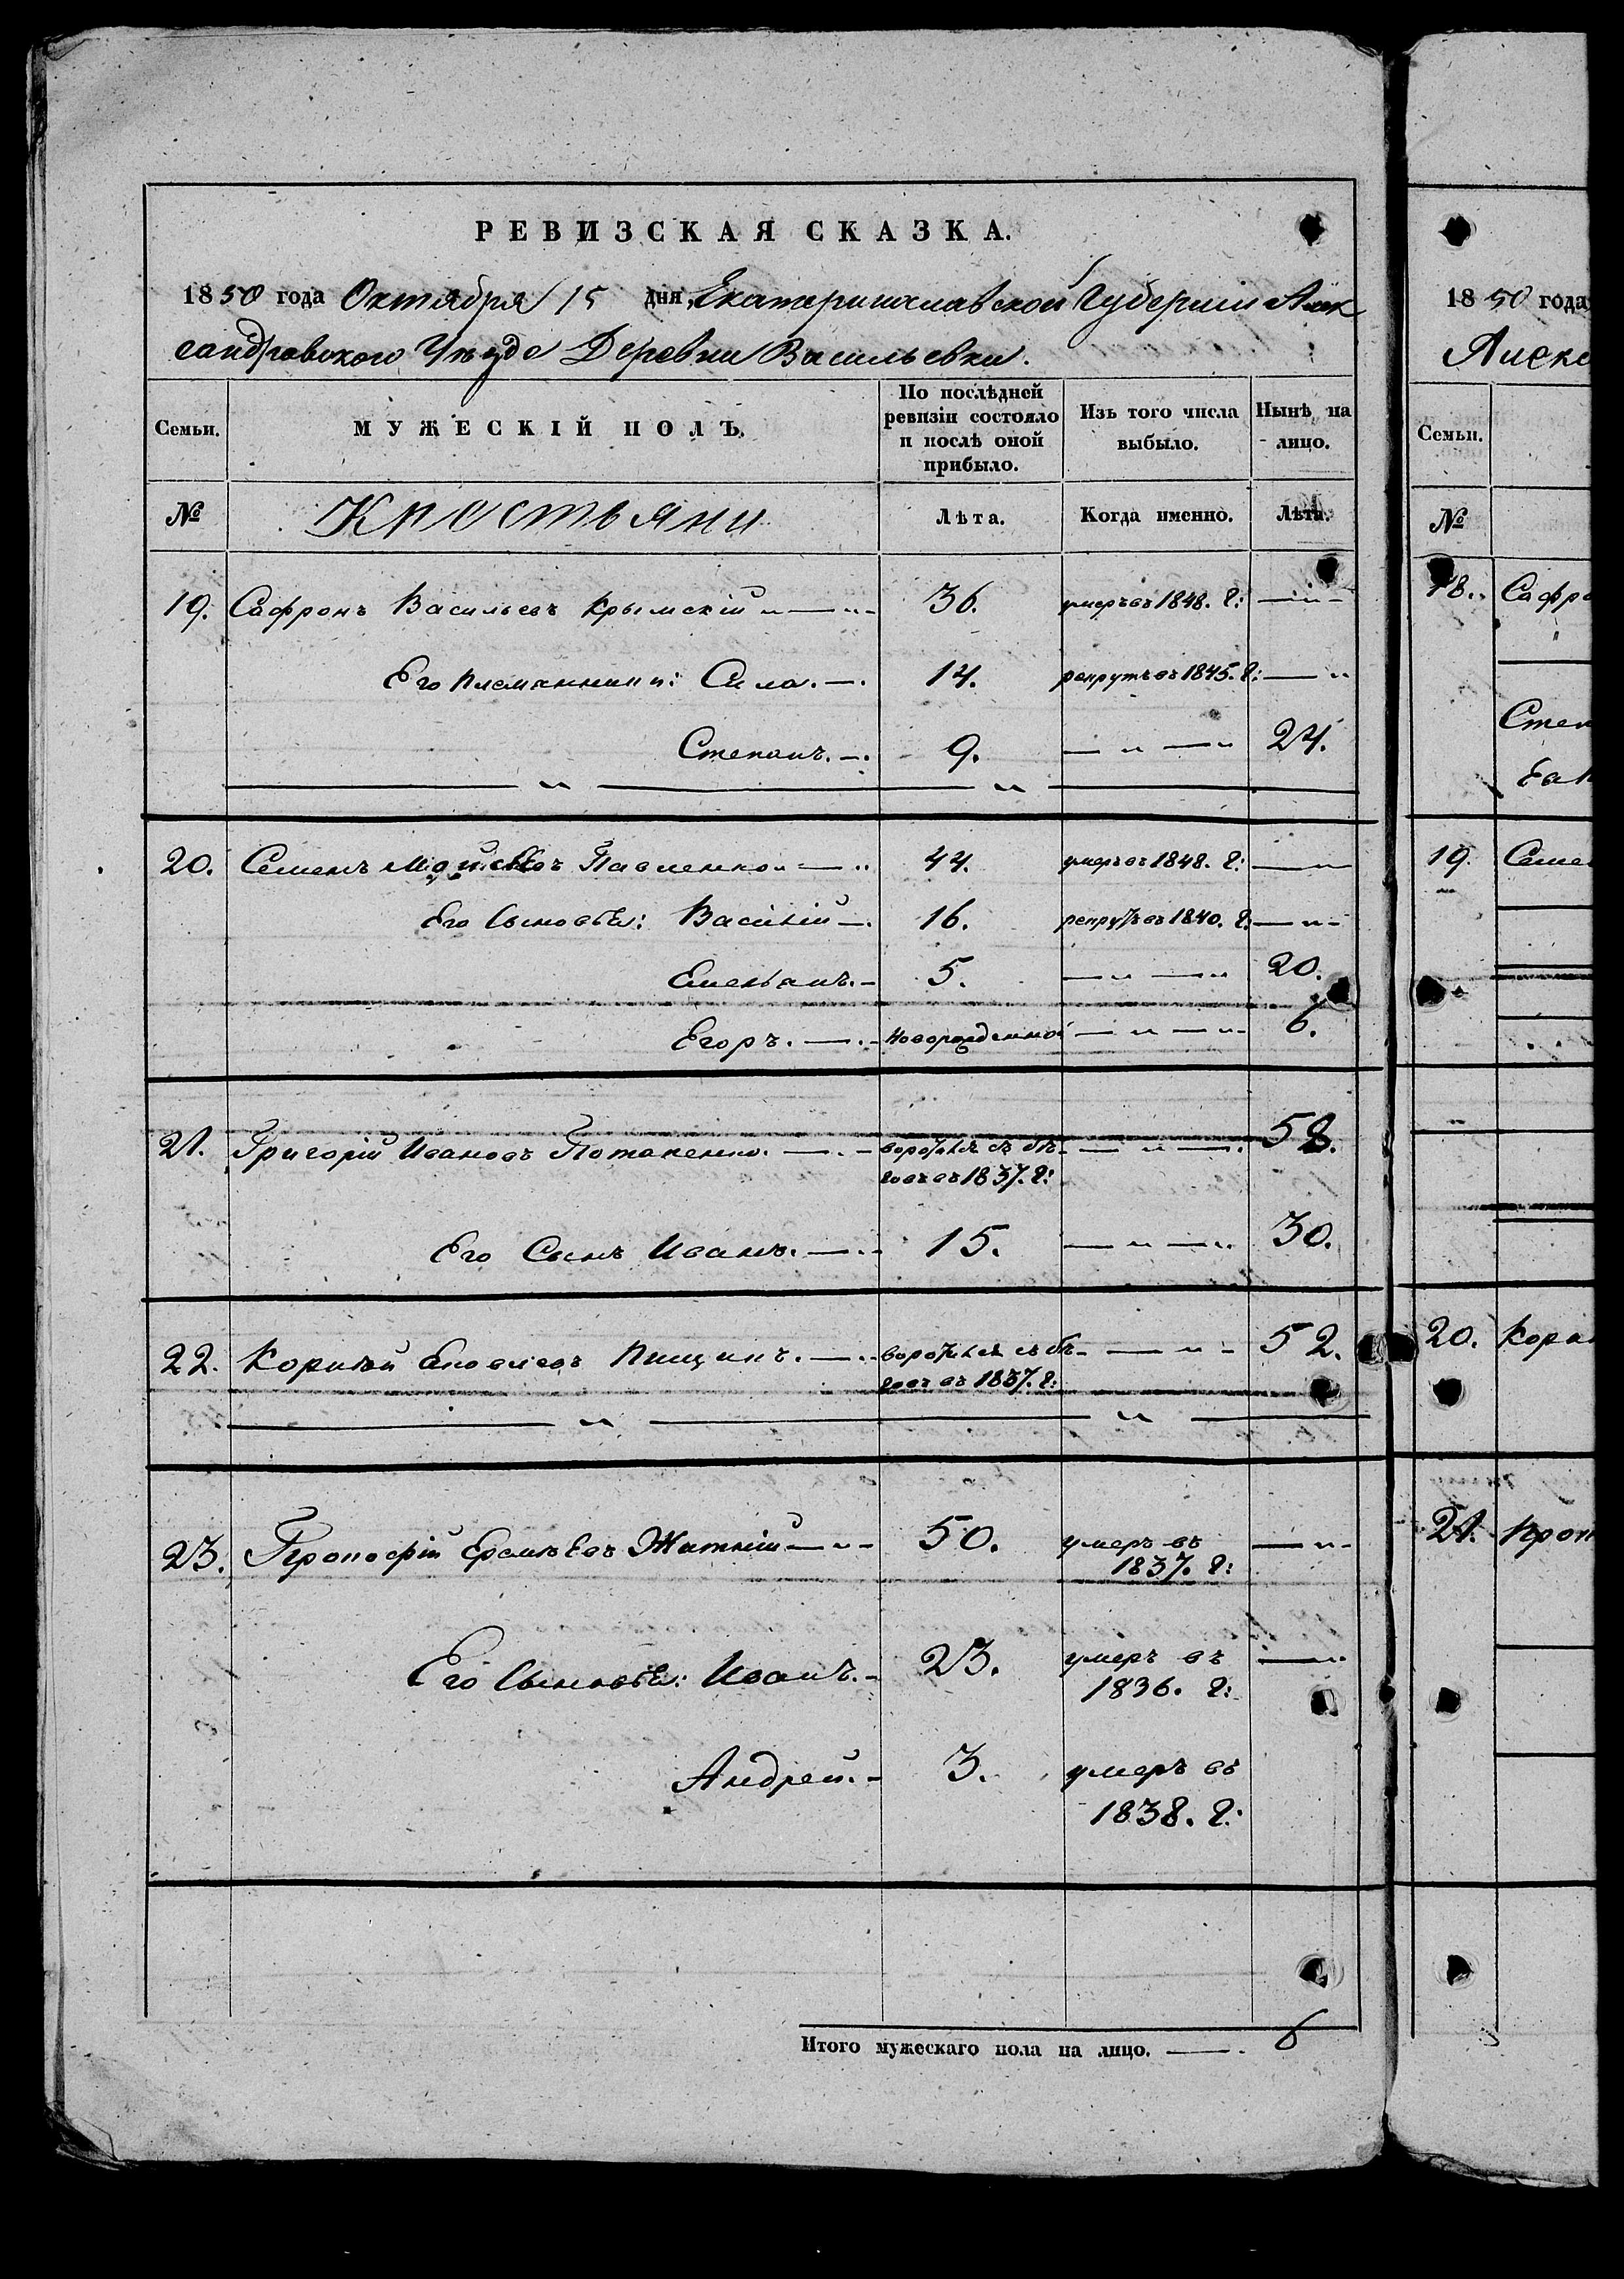 РЕВИЗСКАЯ СКАЗКА.
1850 года Октября 15 дня, Екатеринославской Губернии Алек
сандровского Уѣзда Деревни Васильевки.
Семьи. МУЖЕСКІЙ ПОЛЪ. По послѣдней ревизіи состояло и послѣ оной прибыло. Изъ того числа выбыло. Нынѣ на лицо.
№ Крестьяни Лѣта. Когда именно. Лѣта.
19. Сафронъ Васильевъ Крымскій 36. умеръ въ 1848. г:
Его племянники: Сила. 14. рекрутъ въ 1845. г:
Степанъ. 9. 24.
20. Семенъ Мойсѣевъ Павленко 44. умеръ въ 1848. г:
Его Сыновья: Василій 16. рекрутъ въ 1840. г:
Емельянъ. 5. 20.
Егоръ. Новорожденной 6.
21. Григорій Ивановъ Потапенко. воротился съ бѣ- 58.
говъ въ 1837. г:
Его Сынъ Иванъ. 15. 30.
22. Корнѣй Яковлевъ Пищикъ. воротился съ бѣ- 52.
говъ въ 1837. г:
23. Еремѣевъ Житній 50. умеръ въ
1837. г:
Его Сыновья: Иванъ. 23. умеръ въ
1836. г:
Андрей. 3. умеръ въ
1838. г:
Итого мужескаго пола на лицо. 6
1850 года
Алекс
Семьи.
№
18. Сафро
Степ
Его
19. Семе
20. Корн
21.